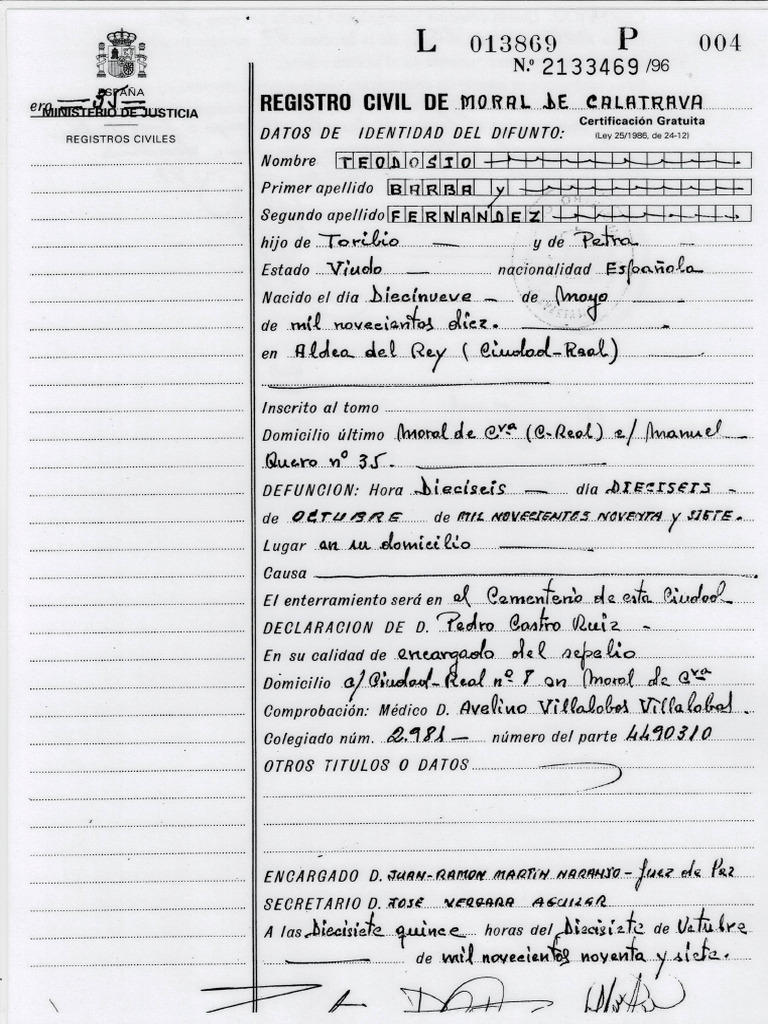 L 013869 P 004
N.º 2133469 /96
ESPAÑA
ero 55
MINISTERIO DE JUSTICIA
REGISTROS CIVILES
REGISTRO CIVIL DE MORAL DE CALATRAVA
Certificación Gratuita
DATOS DE IDENTIDAD DEL DIFUNTO: (Ley 25/1986, de 24-12)
Nombre TEODOSIO
Primer apellido BARBA y
Segundo apellido FERNANDEZ
hijo de Toribio y de Petra
Estado Viudo nacionalidad Española
Nacido el día Diecinueve de Mayo
de mil novecientos diez.
en Aldea del Rey (Ciudad-Real)
Inscrito al tomo
Domicilio último Moral de Cva (C-Real) c/ Manuel
Quero nº 35.
DEFUNCION: Hora Dieciseis día DIECISEIS
de OCTUBRE de MIL NOVECIENTOS NOVENTA y SIETE.
Lugar en su domicilio
Causa
El enterramiento será en el Cementerio de esta Ciudad
DECLARACION DE D. Pedro Castro Ruiz
En su calidad de encargado del sepelio
Domicilio c/ Ciudad-Real nº 8 en Moral de Cva
Comprobación: Médico D. Avelino Villalobos Villalobos.
Colegiado núm. 2.981 número del parte 4490310
OTROS TITULOS O DATOS
ENCARGADO D. JUAN-RAMON MARTIN NARANJO - Juez de Paz
SECRETARIO D. JOSE VERGARA AGUILAR
A las Diecisiete quince horas del Diecisiete de Octubre
de mil novecientos noventa y siete.